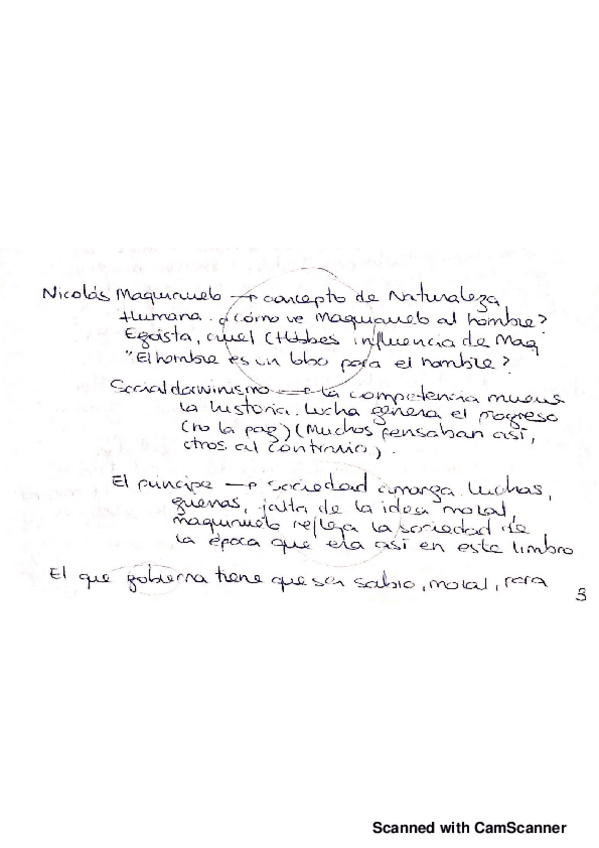 Nicolás Maquiavelo → concepto de Naturaleza
Humana. ¿cómo ve Maquiavelo al hombre?
Egoísta, cruel (Hobbes influencia de Maq
"El hombre es un lobo para el hombre?
Socialdarwinismo → la competencia mueve
la historia. lucha genera el progreso
(no la paz) (Muchos pensaban así,
otros al contrario).
El príncipe → sociedad amarga. luchas,
guerras, falta de la idea moral,
maquiavelo refleja la sociedad de
la época que era así en este limbro
El que gobierna tiene que ser sabio, moral, para
3
Scanned with CamScanner